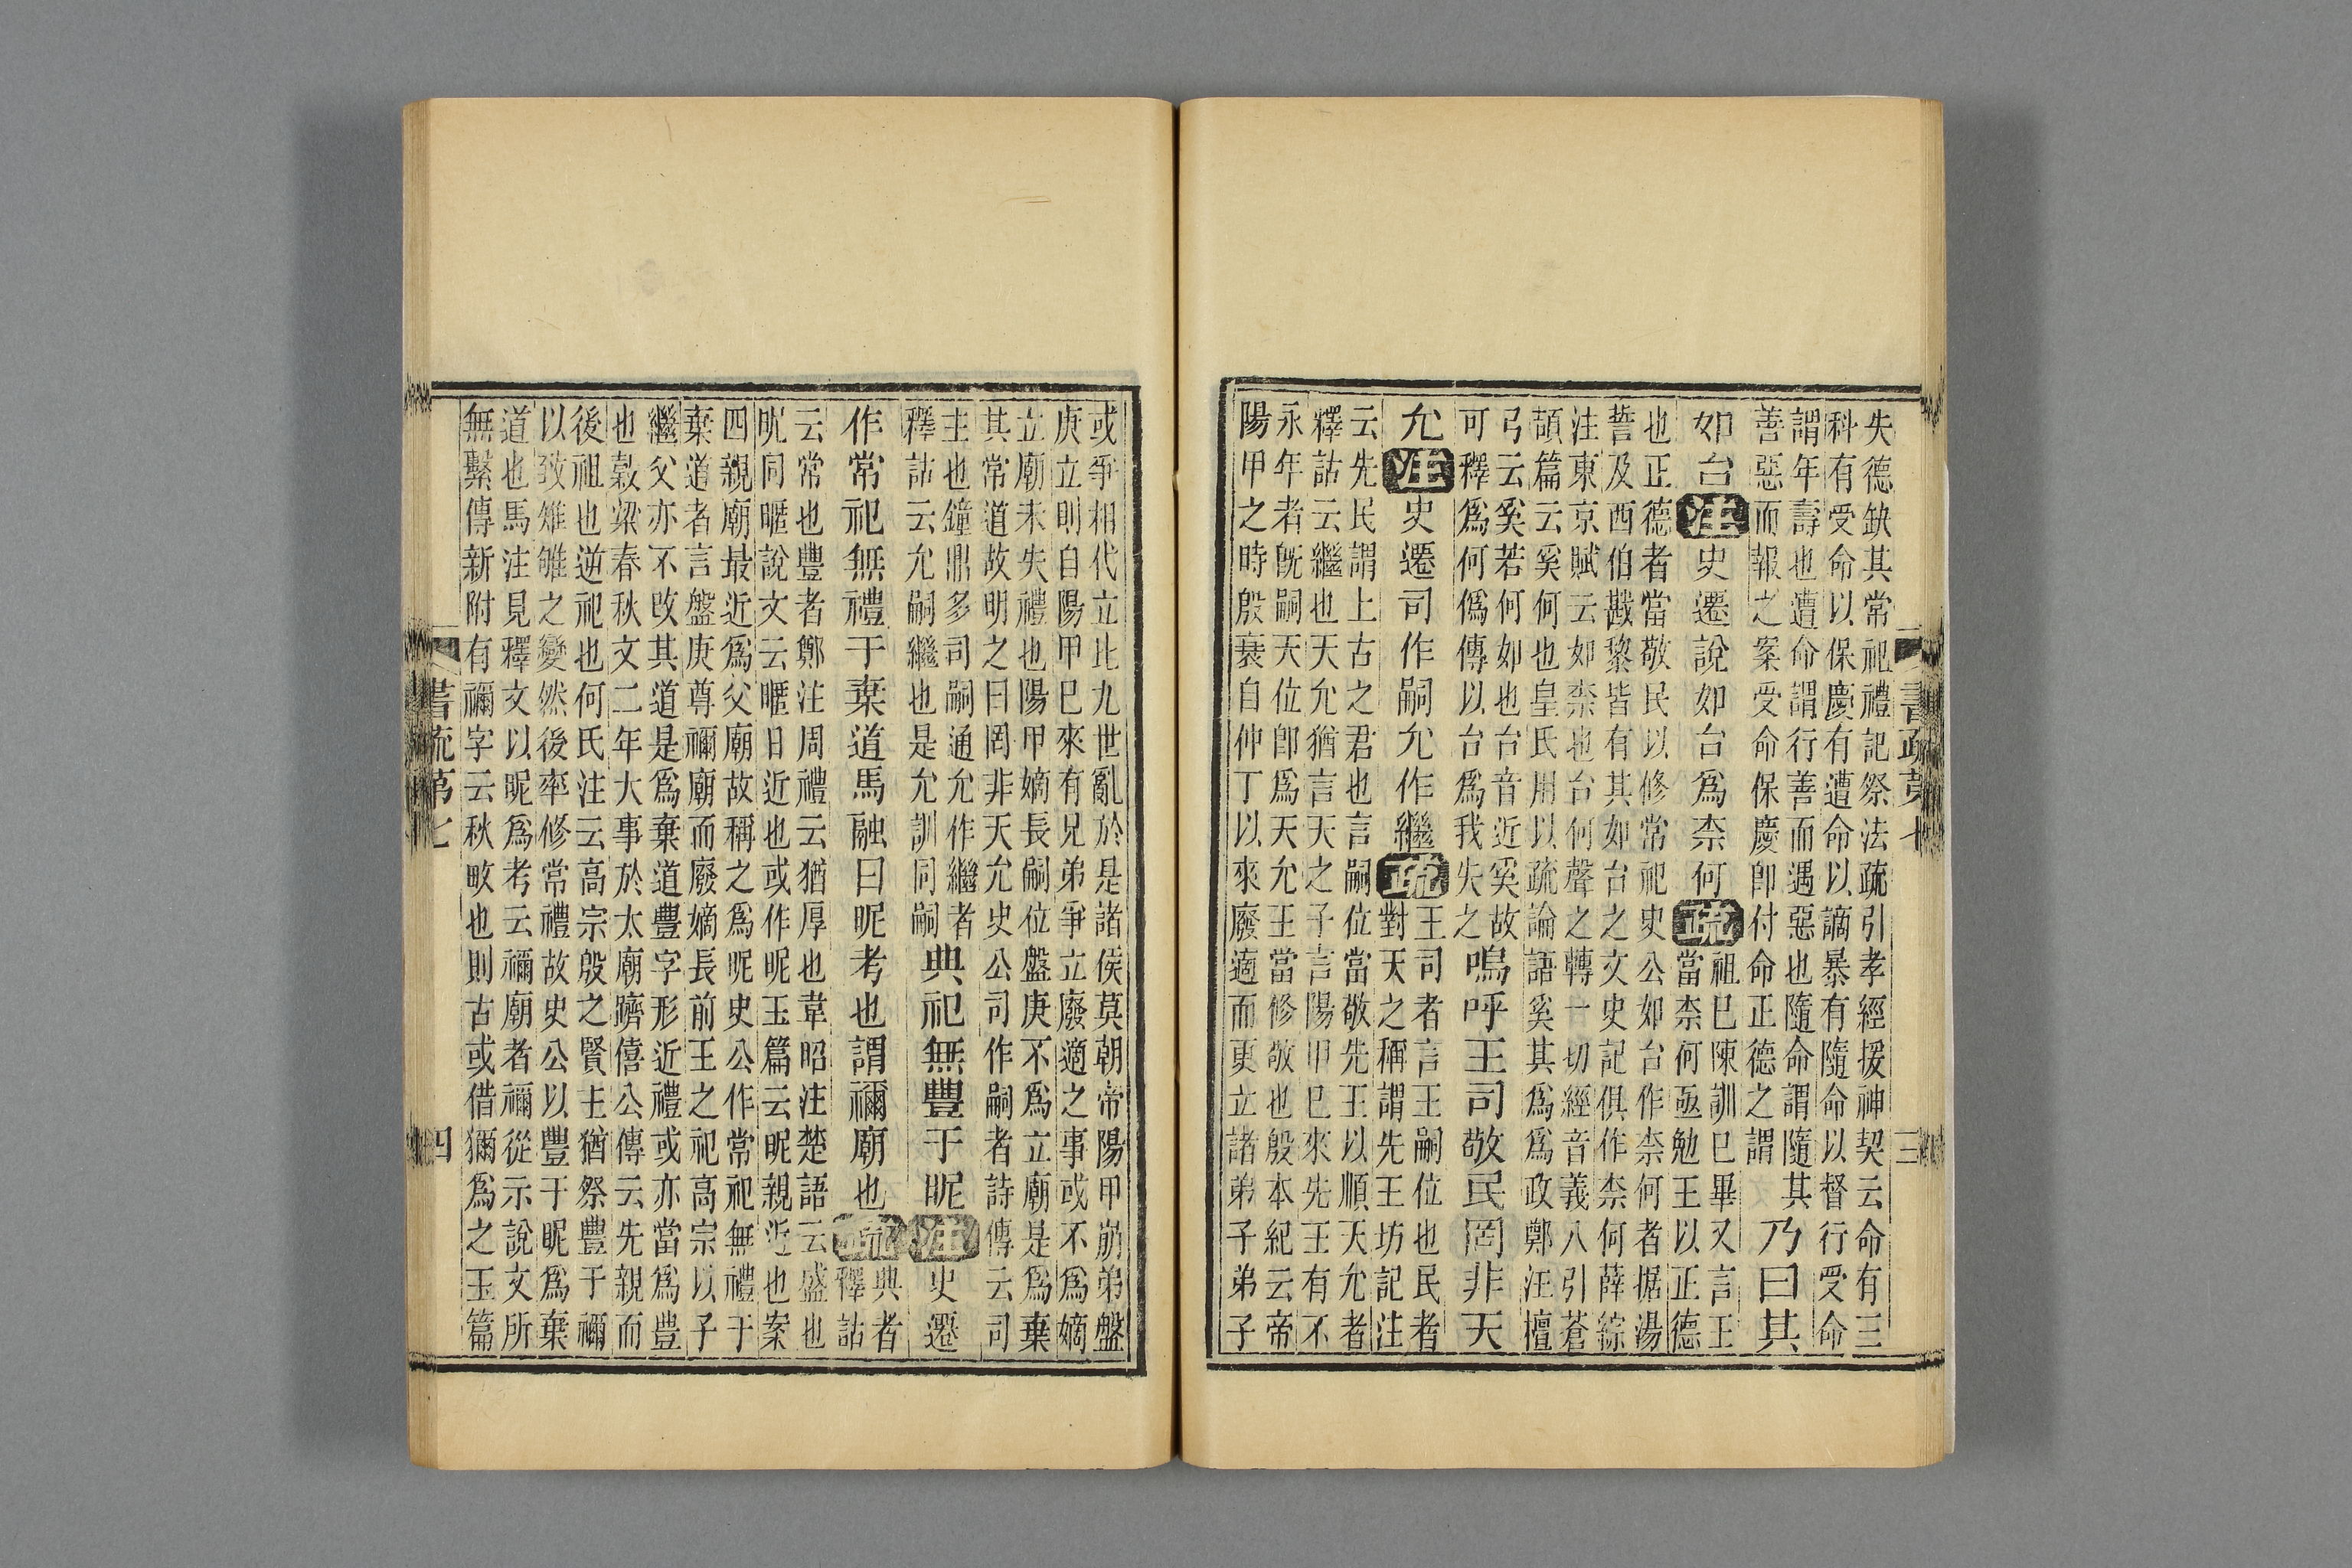 書疏第七 三
失德缺其常祀禮記祭法疏引孝經援神契云命有三
科有受命以保慶有遭命以謫暴有隨命以督行受命
謂年壽也遭命謂行善而遇惡也隨命謂隨其
善惡而報之案受命保慶卽付命正德之謂
乃曰其
如台注史遷說如台爲柰何疏
祖巳陳訓巳畢又言王
當柰何亟勉王以正德
也正德者當敬民以修常祀史公如台作柰何者据湯
誓及西伯戡黎皆有其如台之文史記俱作柰何薛綜
注東京賦云如柰也台何聲之轉一切經音義八引蒼
頡篇云奚何也皇氏用以疏論語奚其爲爲政鄭注檀
弓云奚若何如也台音近奚故
可釋爲何僞傳以台爲我失之
嗚呼王司敬民罔非天
允注史遷司作嗣允作繼疏
王司者言王嗣位也民者
對天之稱謂先王坊記注
云先民謂上古之君也言嗣位當敬先王以順天允者
釋詁云繼也天允猶言天之子言陽甲巳來先王有不
永年者旣嗣天位卽爲天允王當修敬也殷本紀云帝
陽甲之時殷衰自仲丁以來廢適而更立諸弟子弟子
或爭相代立比九世亂於是諸侯莫朝帝陽甲崩弟盤
庚立則自陽甲巳來有兄弟爭立廢適之事或不爲嫡
立廟未失禮也陽甲嫡長嗣位盤庚不爲立廟是爲棄
其常道故明之曰罔非天允史公司作嗣者詩傳云司
主也鐘鼎多司嗣通允作繼者
釋詁云允嗣繼也是允訓同嗣
典祀無豐于昵注史遷
作常祀無禮于棄道馬融曰昵考也謂禰廟也疏
典者
釋詁
云常也豐者鄭注周禮云猶厚也韋昭注楚語云盛也
昵同暱說文云暱日近也或作昵玉篇云昵親近也案
四親廟最近爲父廟故稱之爲昵史公作常祀無禮于
棄道者言盤庚尊禰廟而廢嫡長前王之祀高宗以子
繼父亦不改其道是爲棄道豐字形近禮或亦當爲豊
也穀梁春秋文二年大事於太廟躋僖公傳云先親而
後祖也逆祀也何氏注云高宗殷之賢主猶祭豐于禰
以致雉雊之變然後率修常禮故史公以豐于昵爲棄
道也馬注見釋文以昵爲考云禰廟者禰從示說文所
無繫傳新附有禰字云秋畋也則古或借獮爲之玉篇
書疏第七 四